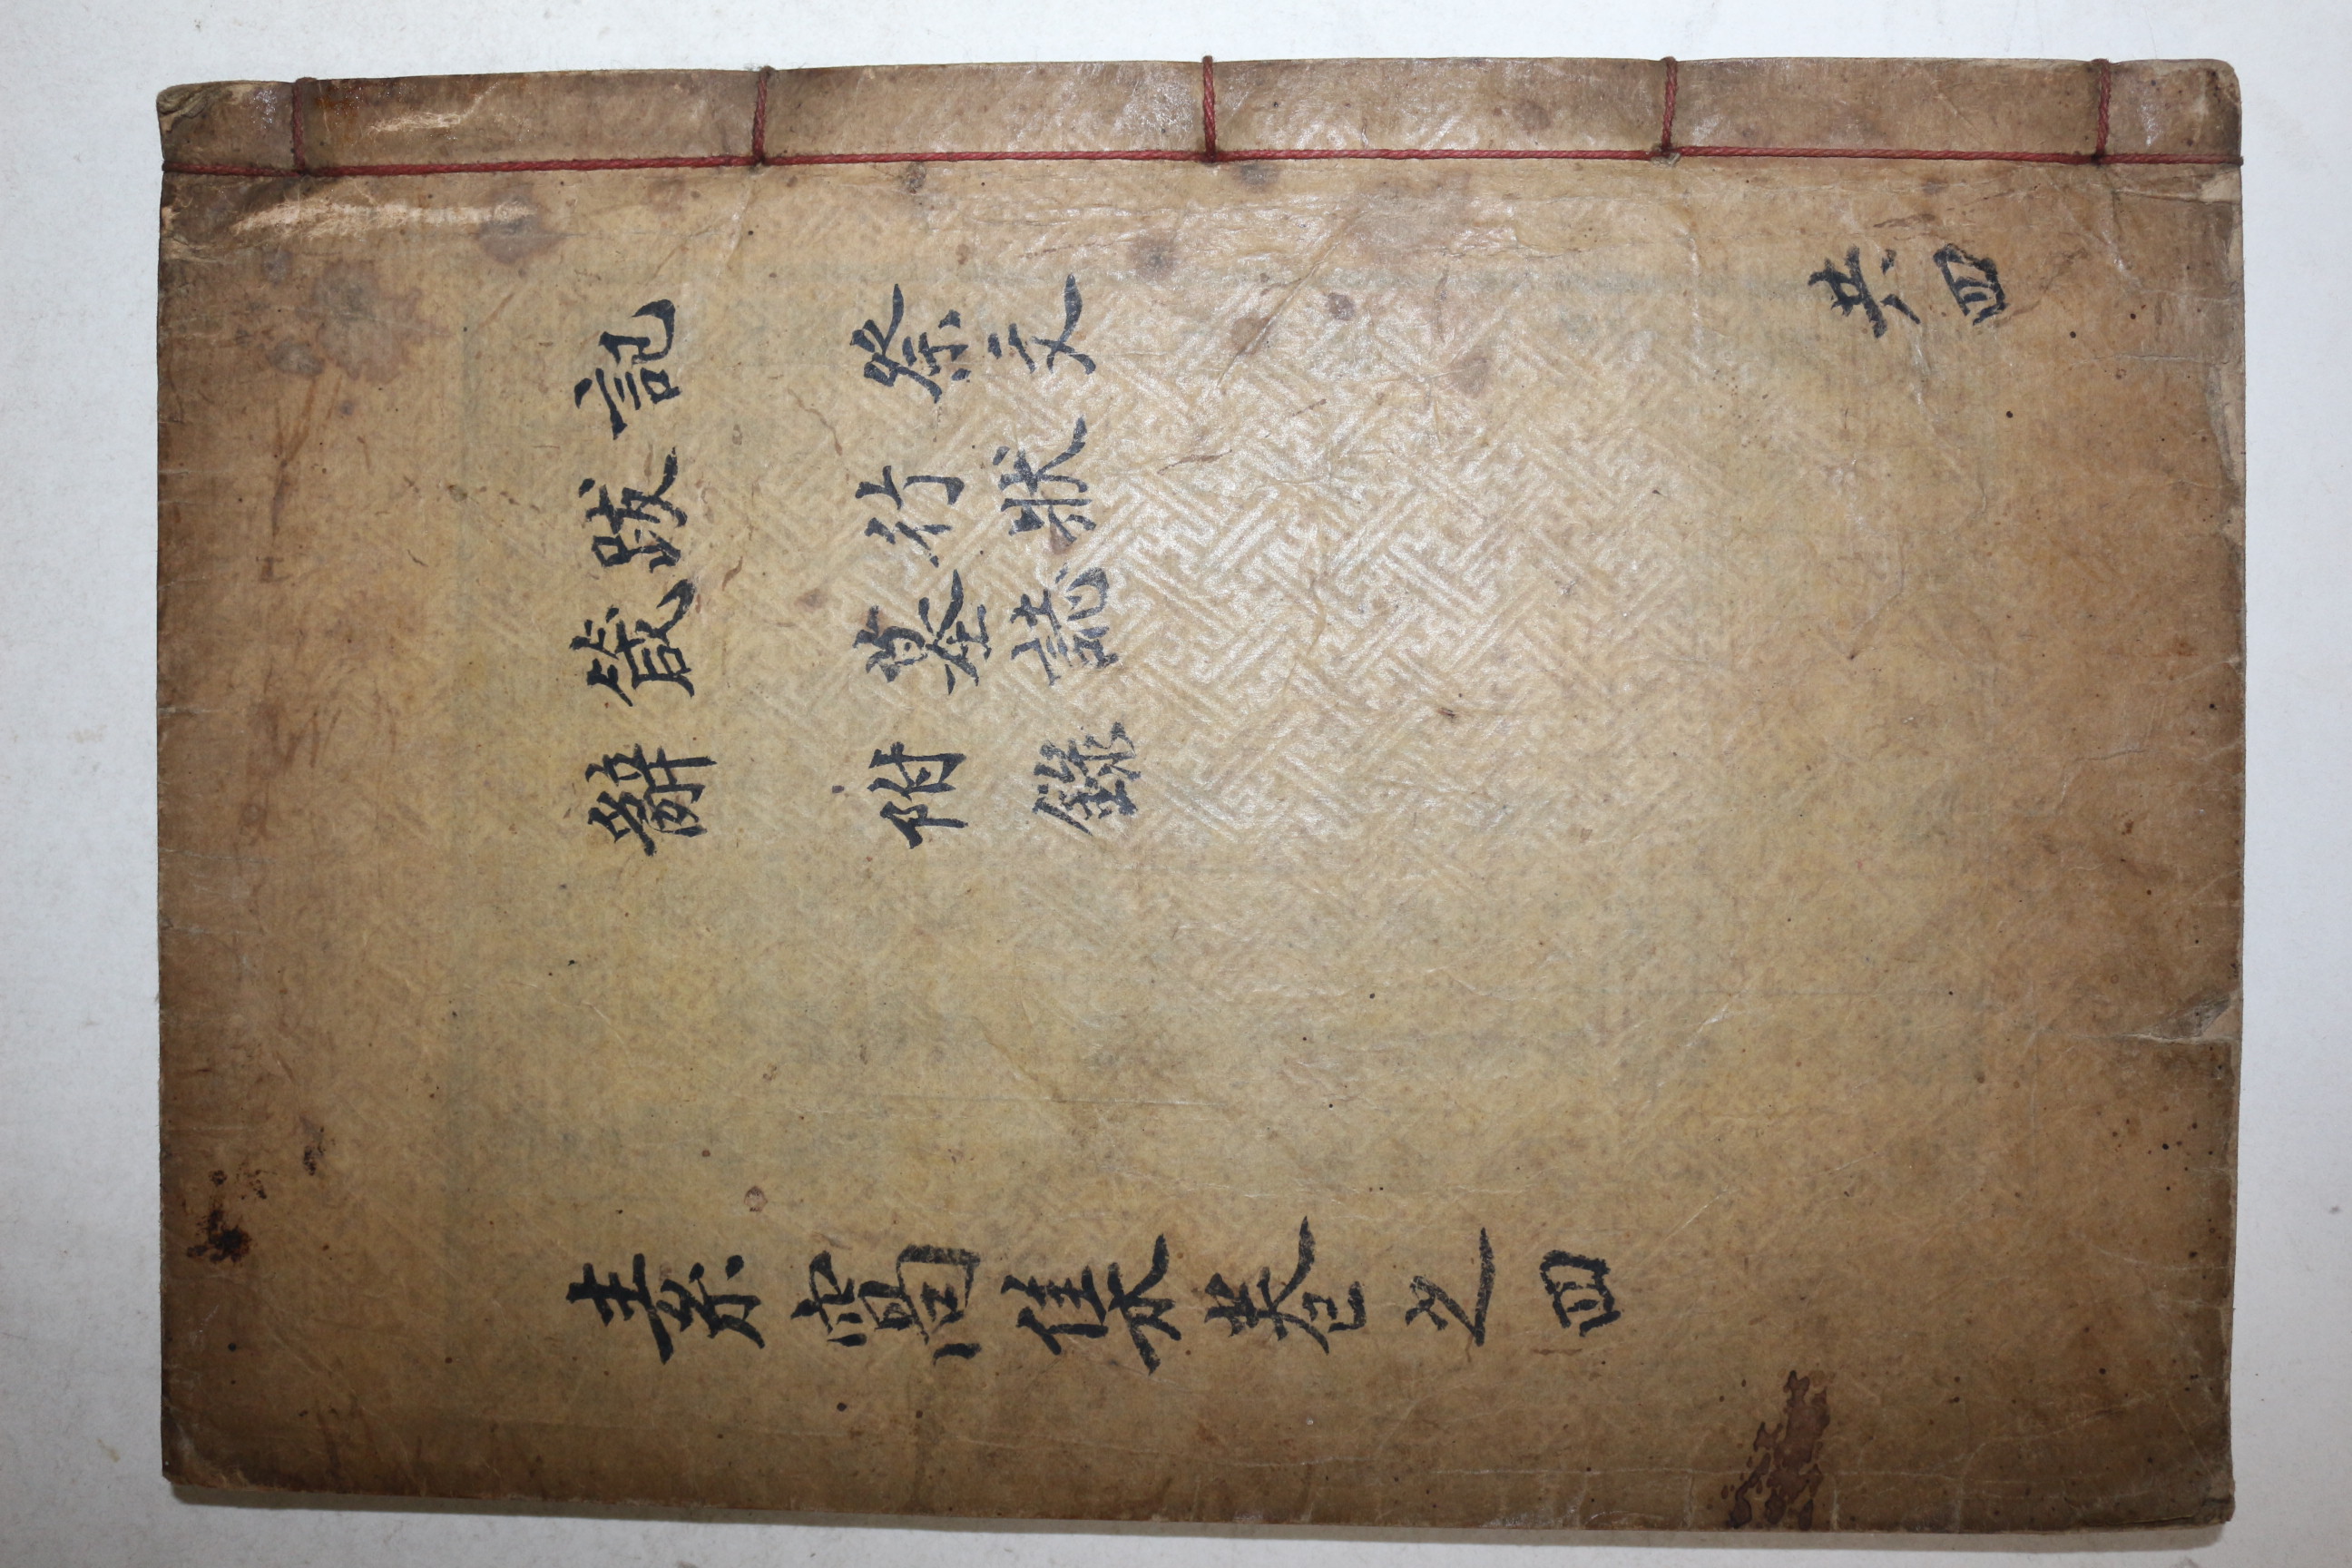 記 祭文
跋 行狀
箴 墓誌
辭 附錄
共四
素窩集卷之四